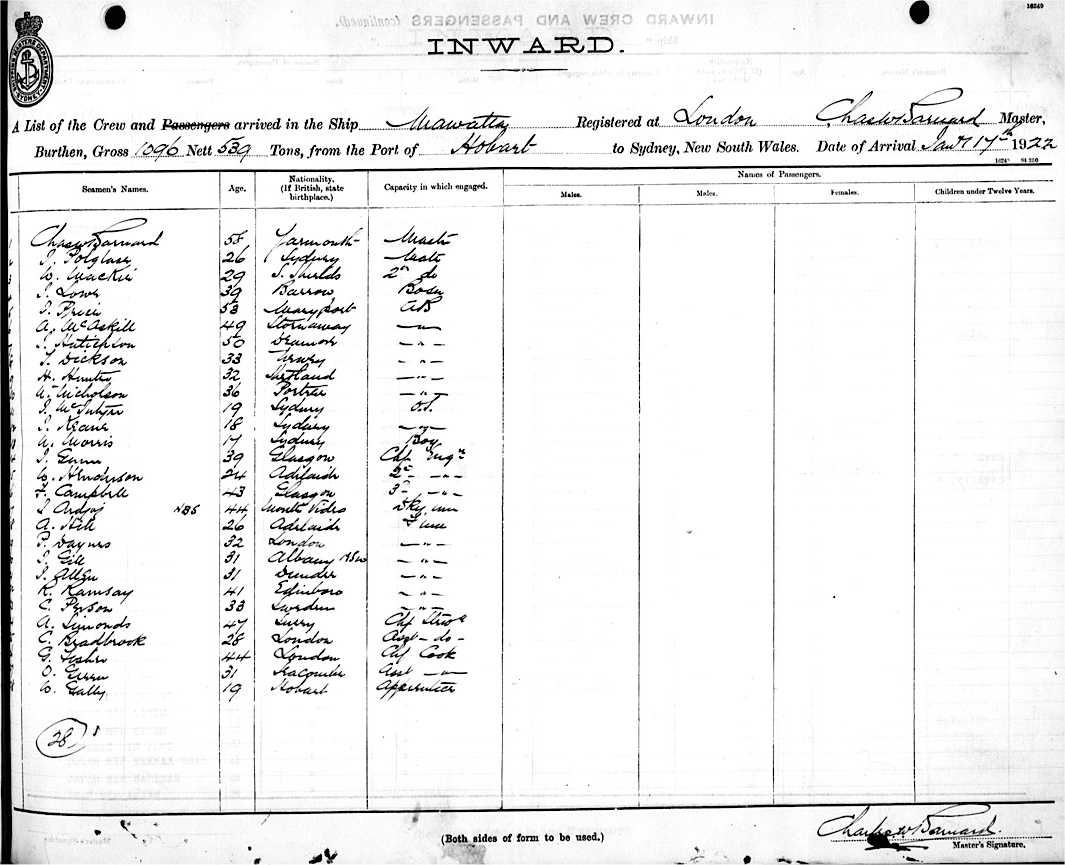 16249
INWARD.
A List of the Crew and Passengers arrived in the Ship Mawatta Registered at London Chas W Barnard Master,
Burthen, Gross 1096 Nett 539 Tons, from the Port of Hobart to Sydney, New South Wales. Date of Arrival Jany 17th 1922
Seamen's Names. Age. Nationality. (If British, state birthplace.) Capacity in which engaged. Names of Passengers.
Males. Males. Females. Children under Twelve Years.
Chas W Barnard 58 Yarmouth Master
J. Polglase 26 Sydney Mate
W. Mackie 29 S. Shields 2nd do
J. Lowe 39 Barrow Bosn
J. Price 53 Maryport AB
A. McAskill 49 Stornaway — " —
J. Hutichson 50 — " —
J. Dickson 33 Newry — " —
H. Hunter 32 Shetland — " —
A. Nicholson 36 Portree — " —
J. McIntyre 19 Sydney O.S.
J. Keane 18 Sydney — " —
A. Morris 17 Sydney Boy
J. Gunn 39 Glasgow Chf Engr
W. Henderson 24 Adelaide 2nd — " —
F. Campbell 43 Glasgow 3rd — " —
J. NBS 44 Monte Video Dkyman
A. Hill 26 Adelaide Fman
P. Daynes 32 London — " —
J. Gill 31 Albany — " —
J. Allen 31 Dundee — " —
R. Ramsay 41 Edinboro — " —
C. Person 33 Sweden — " —
A. Simonds 47 Surry Chf Stewd
C. Bradbrook 28 London Asst — do —
G. Fisher 44 London Chf Cook
O. 31 Ilfracombe Asst — " —
W. Gally 19 Hobart Apprentice
28
(Both sides of form to be used.)
Charles W Barnard.
Master's Signature.